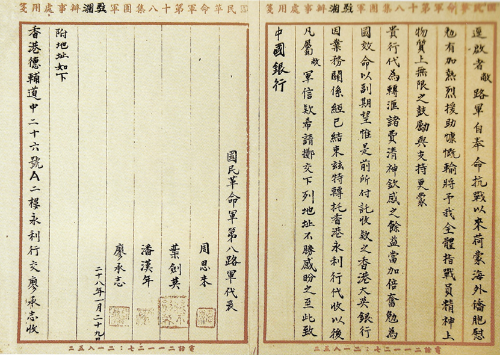 民革命軍第十八集團軍辦事處用箋
逕啟者敝路軍自奉命抗戰以來荷蒙海外僑胞慰
勉有加熱烈援助慷慨輸將予我全體指戰員精神上
物質上無限之鼓勵與支持更蒙
貴行代為轉滙諸費清神欽感之餘益當加倍奮勉為
國效命以副期望惟是前所付託收欵之香港大英銀行
因業務關係經已結束茲特轉托香港永利行代收以後
凡屬敝軍信欵希請擲交下列地址不勝感盼之至此致
中國銀行
二五八一二:七二一一二話電
民革命軍第十八集團軍辦事處用箋
國民革命軍第八路軍代表
周恩來
葉劍英
潘漢年
廖承志
二十八年一月二十九日
附地址如下
香港德輔道中二十六號A二樓永利行交廖承志收
二五八一二:七二一一二話電